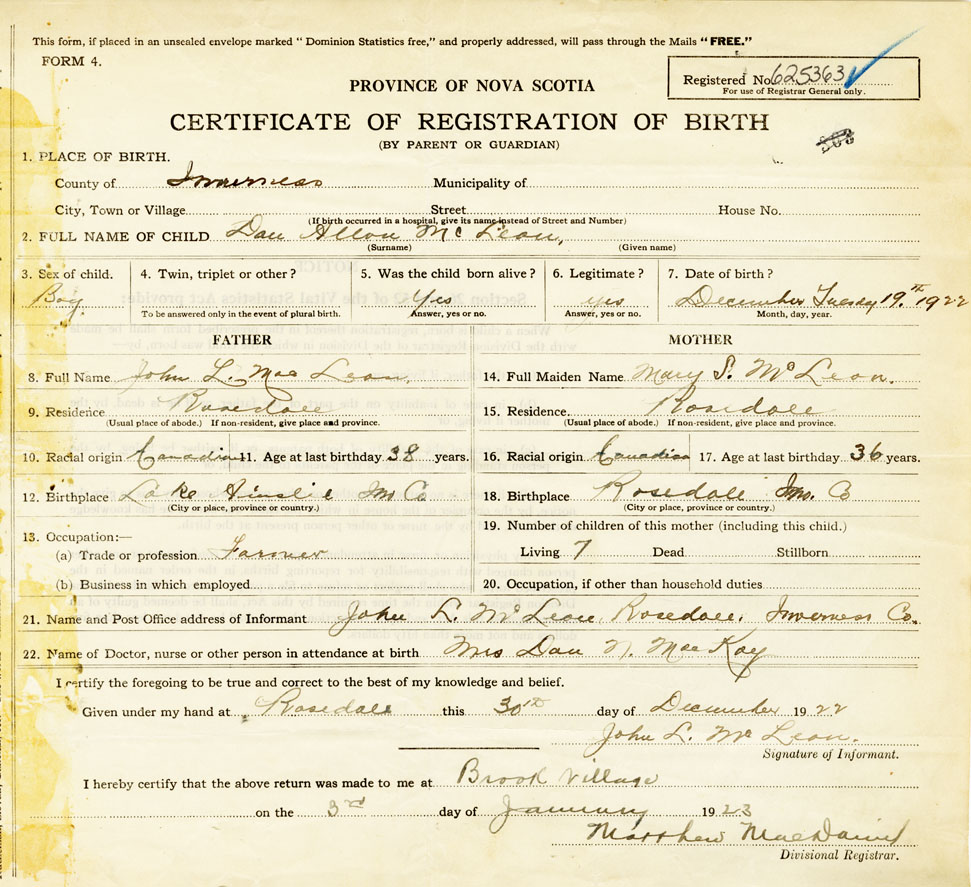 This form, if placed in an unsealed envelope marked "Dominion Statistics free," and properly addressed, will pass through the Mails "FREE."
FORM 4.
Registered No. 625363
For use of Registrar General only.
PROVINCE OF NOVA SCOTIA
CERTIFICATE OF REGISTRATION OF BIRTH
(BY PARENT OR GUARDIAN)
1. PLACE OF BIRTH.
County of Inverness Municipality of
City, Town or Village Street House No.
(If birth occurred in a hospital, give its name instead of Street and Number)
2. FULL NAME OF CHILD Dan Allon McLeon,
(Surname) (Given name)
3. Sex of child. 4. Twin, triplet or other? 5. Was the child born alive? 6. Legitimate? 7. Date of birth?
Boy Yes yes December Tuesday 19th 1922
To be answered only in the event of plural birth. Answer, yes or no. Answer, yes or no. Month, day, year.
FATHER MOTHER
8. Full Name John L. Mac Leon. 14. Full Maiden Name Mary S. McLeon.
9. Residence Rosedale 15. Residence. Rosedale
(Usual place of abode.) If non-resident, give place and province. (Usual place of abode.) If non-resident, give place and province.
10. Racial origin Canadian 11. Age at last birthday 38 years. 16. Racial origin Canadian 17. Age at last birthday 36 years.
12. Birthplace Lake Ainslie Inv Co 18. Birthplace Rosedale Inv. Co
(City or place, province or country.) (City or place, province or country.)
19. Number of children of this mother (including this child.)
13. Occupation:—
(a) Trade or profession Farmer Living 7 Dead Stillborn
(b) Business in which employed 20. Occupation, if other than household duties
21. Name and Post Office address of Informant John L. McLeon, Rosedale, Inverness Co.
22. Name of Doctor, nurse or other person in attendance at birth Mrs Dan N. MacKay
I certify the foregoing to be true and correct to the best of my knowledge and belief.
Given under my hand at Rosedale this 30th day of December 1922
John L. McLeon.
Signature of Informant.
I hereby certify that the above return was made to me at Brook Village
on the 3rd day of January 1923
Matthew MacDaniel
Divisional Registrar.